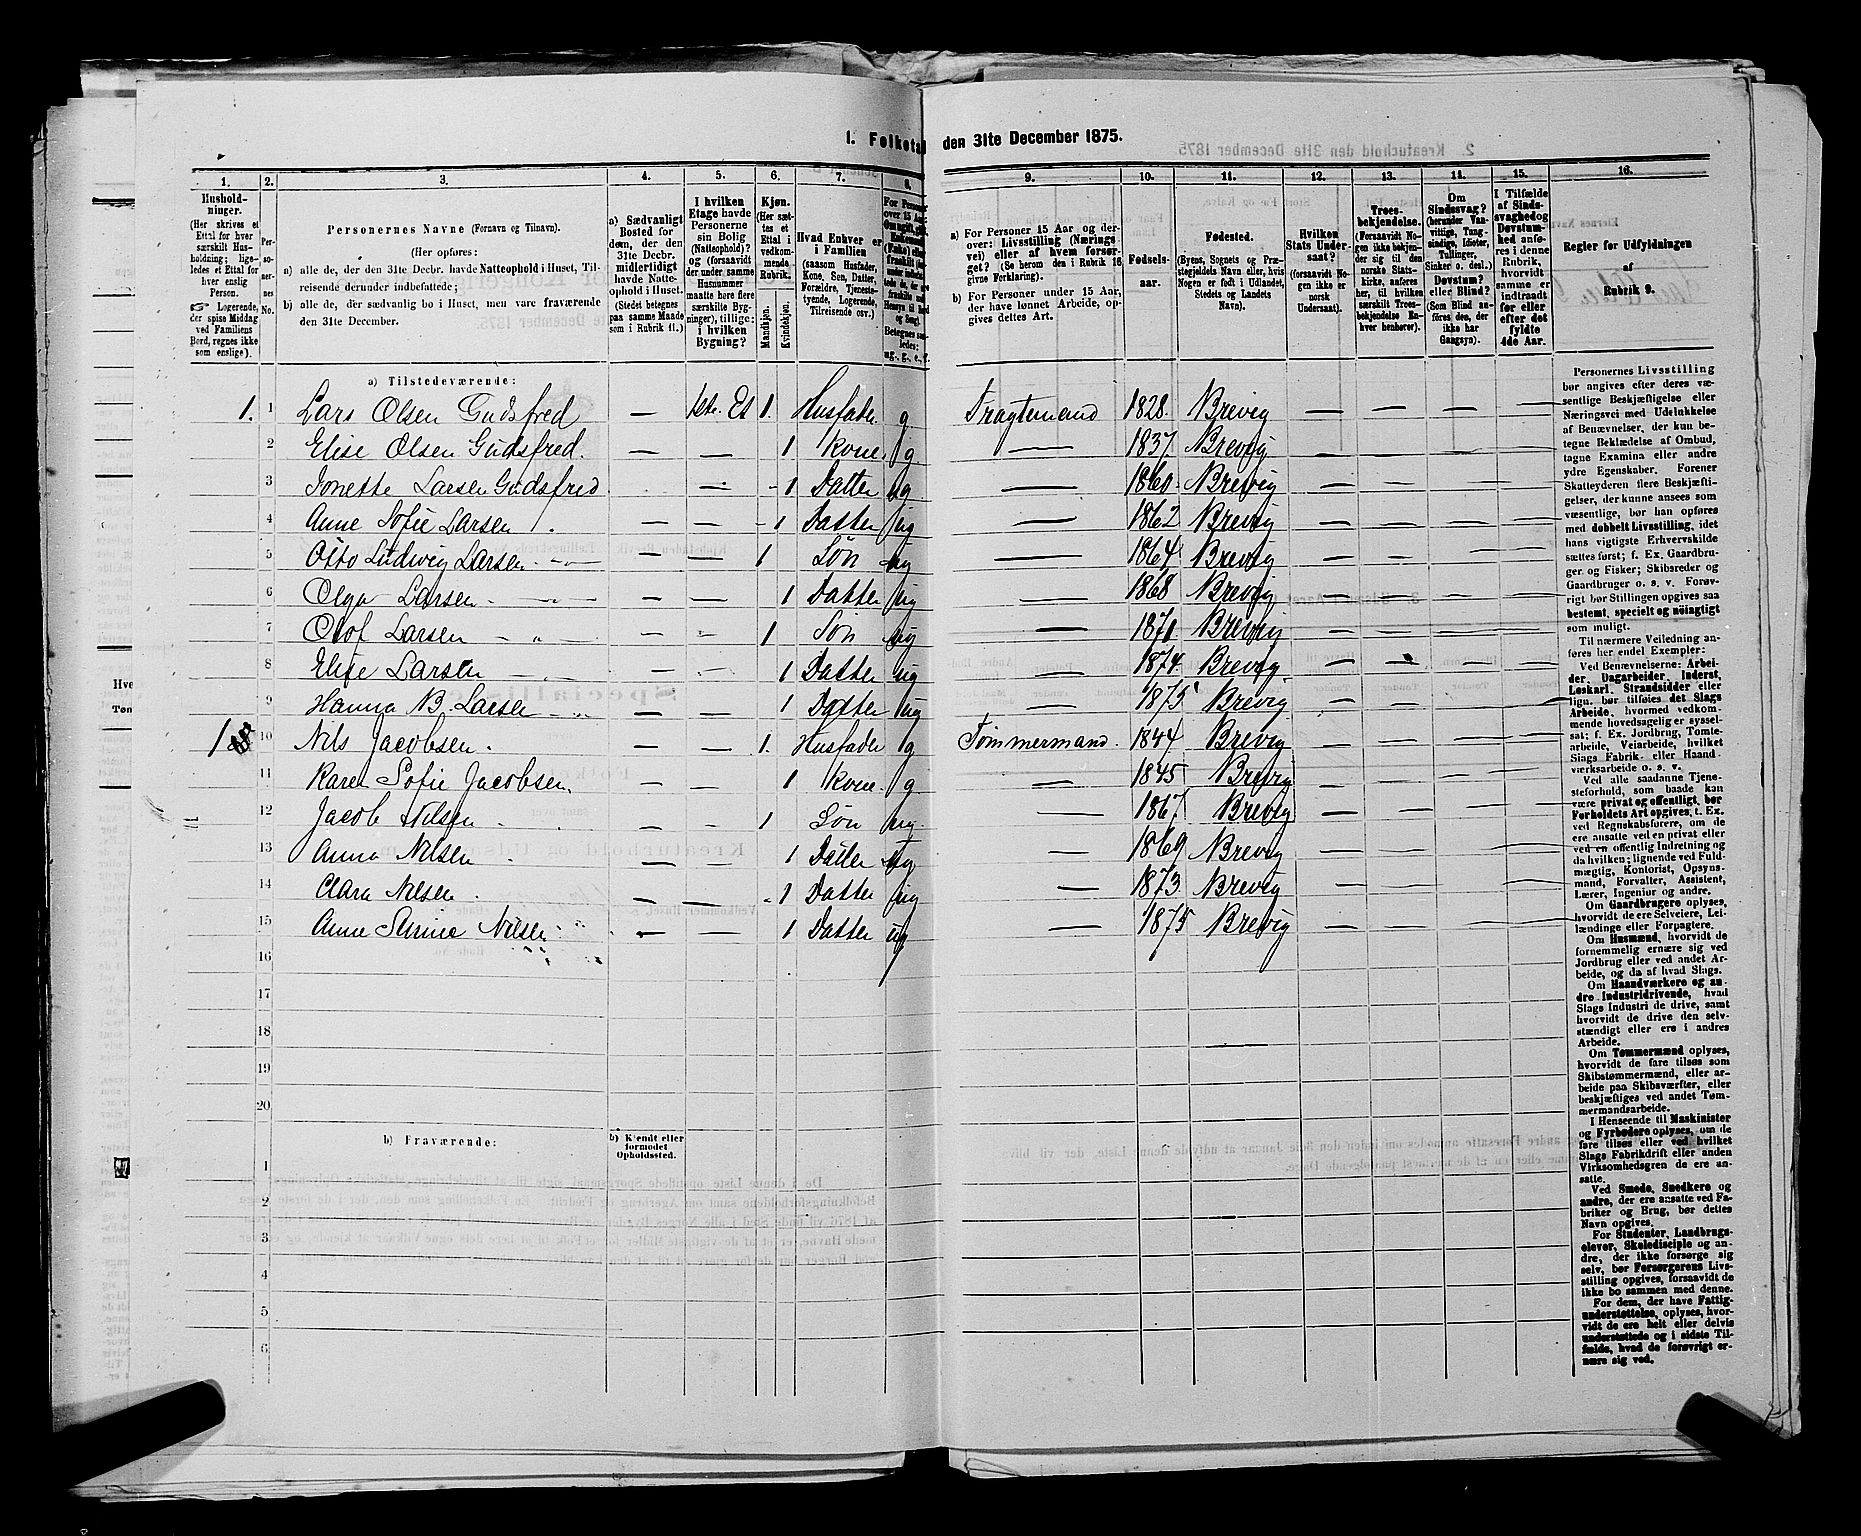 1. Folketal den 31te December 1875.
1.
2.
3.
4.
5.
6.
7.
8.
9.
10.
11.
12.
13.
14.
15.
16.
Husholdninger.
(Her skrives et
Ettal for hver
særskilt Husholdning;
ligeledes et Ettal for
hver enslig
Person.
Logerende,
der spise Middag
ved Familiens
Bord, regnes ikke
som enslige).
Personernes No.
Personernes Navne (Fornavn og Tilnavn).
(Her opføres:
a) alle de, der den 31te Decbr. havde Natteophold i Huset, Tilreisende
derunder indbefattede;
b) alle de, der sædvanlig bo i Huset, men vare fraværende
den 31te December.
a) Sædvanligt
Bosted for
dem, der den
31te Decbr.
midlertidigt
havde Natteophold
i Huset.
(Stedet betegnes
paa samme Maade
som i Rubrik 11.)
I hvilken
Etage havde
Personerne
sin Bolig
(Natteophold)?
og (forsaavidt
der under samme
Husnummer
maatte høre flere
særskilte Bygninger),
tillige:
i hvilken
Bygning?
Kjøn.
(Her sættes
et
Ettal i
vedkommende
Rubrik.
Mandkjøn.
Kvindekjøn.
Hvad Enhver er
i Familien
(saasom Husfader,
Kone, Søn, Datter,
Forældre, Tjenestetyende,
Logerende,
Tilreisende osv.)
For Personer
over 15 Aar:
Betegnes saaledes:
ug., g., e., f.
a) For Personer 15 Aar og derover:
Livsstilling (Næringsvei)
eller af hvem forsørget?
(Se herom den i Rubrik 16
givne Forklaring).
b) For Personer under 15 Aar,
der have lønnet Arbeide, opgives
dettes Art.
Fødselsaar.
Fødested.
(Byens, Sognets og Præstegjeldets
Navn eller, hvis
Nogen er født i Udlandet,
Stedets og Landets
Navn).
Hvilken
Stats Undersaat?
(forsaavidt Nogen
ikke er
norsk
Undersaat).
Troesbekjendelse.
(Forsaavidt Nogen
ikke bekjender
sig til den
norske Statskirke,
anføres
her, til hvilken
særskilt Troesbekjendelse
Enhver
henhører).
Om
Sindssvag?
(herunder Vanvittige,
Tungsindige,
Idioter,
Tullinger,
Sinker o. desl.)
Døvstum?
eller Blind?
(Som Blind anføres
den, der
ikke har
Gangsyn).
I Tilfælde
af Sindssvaghed
og
Døvstumhed
anføres
i denne
Rubrik,
hvorvidt
samme er
indtraadt
før eller
efter det
fyldte
4de Aar.
Regler for Udfyldningen
af
Rubrik 9.
a) Tilstedeværende:
1. 1 Lars Olsen Gudsfred — 1ste Et 1. Husfader g Fragtemand 1828. Brevig — — — —
2 Elise Olsen Gudsfred. — — 1 Kone. g — 1837. Brevig — — — —
3 Jonette Larsen Gudsfred — 1 Datter ug — 1860. Brevig — — — —
4 Anne Sofie Larsen — — 1 Datter ug — 1862 Brevig — — — —
5 Otto Ludvig Larsen — " — — — 1 Søn ug — 1864 Brevig — — — —
6 Olga Larsen — " — — — 1 Datter ug — 1868 Brevig — — — —
7 Olof Larsen — " — — — 1 Søn ug — 1871 Brevig — — — —
8 Elise Larsen — " — — — 1 Datter ug — 1874. Brevig. — — — —
9 Hanna B. Larsen — " — — — 1 Datter ug — 1875 Brevig — — — —
1 10 Nils Jacobsen. — — 1. Husfader g Tømmermand. 1844 Brevig — — — —
11 Karen Sofie Jacobsen. — — 1 Kone. g — 1845 Brevig — — — —
12 Jacob Nilsen — — 1 Søn ug — 1867 Brevig — — — —
13 Anna Nilsen — — 1 Datter ug — 1869 Brevig — — — —
14 Clara Nilsen — — 1 Datter ug — 1873. Brevig — — — —
15 Anne Nilsen — — 1 Datter ug — 1875 Brevig — — — —
16
17
18
19
20
b) Fraværende:
b) Kjendt eller
formodet
Opholdssted.
1
2
3
4
5
6
Personernes Livsstilling
bør angives efter deres væsentlige
Beskjæftigelse eller
Næringsvei med Udelukkelse
af Benævnelser, der kun betegne
Beklædelse af Ombud,
tagne Examina eller andre
ydre Egenskaber. Forener
Skatteyderen flere Beskjæftigelser,
der kunne ansees som
væsentlige, bør han opføres
med dobbelt Livsstilling, idet
hans vigtigste Erhvervskilde
sættes først; f. Ex. Gaardbruger
og Fisker; Skibsreder og
Gaardbruger o. s. v. Forøvrigt
bør Stillingen opgives saa
bestemt, specielt og nøiagtigt
som muligt.
Til nærmere Veiledning anføres
her endel Exempler:
Ved Benævnelserne: Arbeider,
Dagarbeider, Inderst,
Løskarl, Strandsidder eller
lign. bør tilføies det Slags
Arbeide, hvormed vedkommende
hovedsagelig er sysselsat;
f. Ex. Jordbrug, Tomtearbeide,
Veiarbeide, hvilket
Slags Fabrik- eller Haandværksarbeide
o. s. v.
Ved alle saadanne Tjenesteforhold,
som baade kan
være privat og offentligt, bør
Forholdets Art opgives, t. Ex.
ved Regnskabsførere, om de
ere ansatte ved en privat eller
ved en offentlig Indretning og
da hvilken; lignende ved Fuldmægtig,
Kontorist, Opsynsmand,
Forvalter, Assistent,
Lærer, Ingeniør og andre.
Om Gaardbrugere oplyses,
hvorvidt de ere Selveiere, Leilændinge
eller Forpagtere.
Om Husmænd, hvorvidt de
fornemmelig ernære sig ved
Jordbrug eller ved andet Arbeide,
og da af hvad Slags.
Om Haandværkere og andre
Industridrivende, hvad
Slags Industri de drive, samt
hvorvidt de drive den selvstændigt
eller ere i andres
Arbeide.
Om Tømmermænd oplyses,
hvorvidt de fare tilsøs som
Skibstømmermænd, eller arbeide
paa Skibsværfter, eller
beskjæftiges ved andet Tømmermandsarbeide.
I Henseende til Maskinister
og Fyrbødere oplyses, om de
fare tilsøs eller ved hvilket
Slags Fabrikdrift eller anden
Virksomhedsgren de ere ansatte.
Ved Smede, Snedkere og
andre, der ere ansatte ved Fabriker
og Brug, bør dettes
Navn opgives.
For Studenter, Landbrugselever,
Skoledisciple og andre,
der ikke forsørge sig
selv, bør Forsørgerens Livsstilling
opgives, forsaavidt de
ikke bo sammen med denne.
For dem, der have Fattigunderstøttelse,
oplyses, hvorvidt
de ere helt eller delvis
understøttede og i sidste Tilfælde,
hvad de forøvrigt ernære
sig ved.